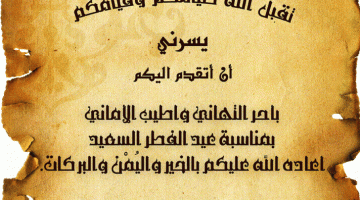 تقبل الله صيامكم وقيامكم
يسرني
أن أتقدم اليكم
باحر التهاني واطيب الاماني
بمناسبة عيد الفطر السعيد
اعاده الله عليكم بالخير واليُمْن والبركات.